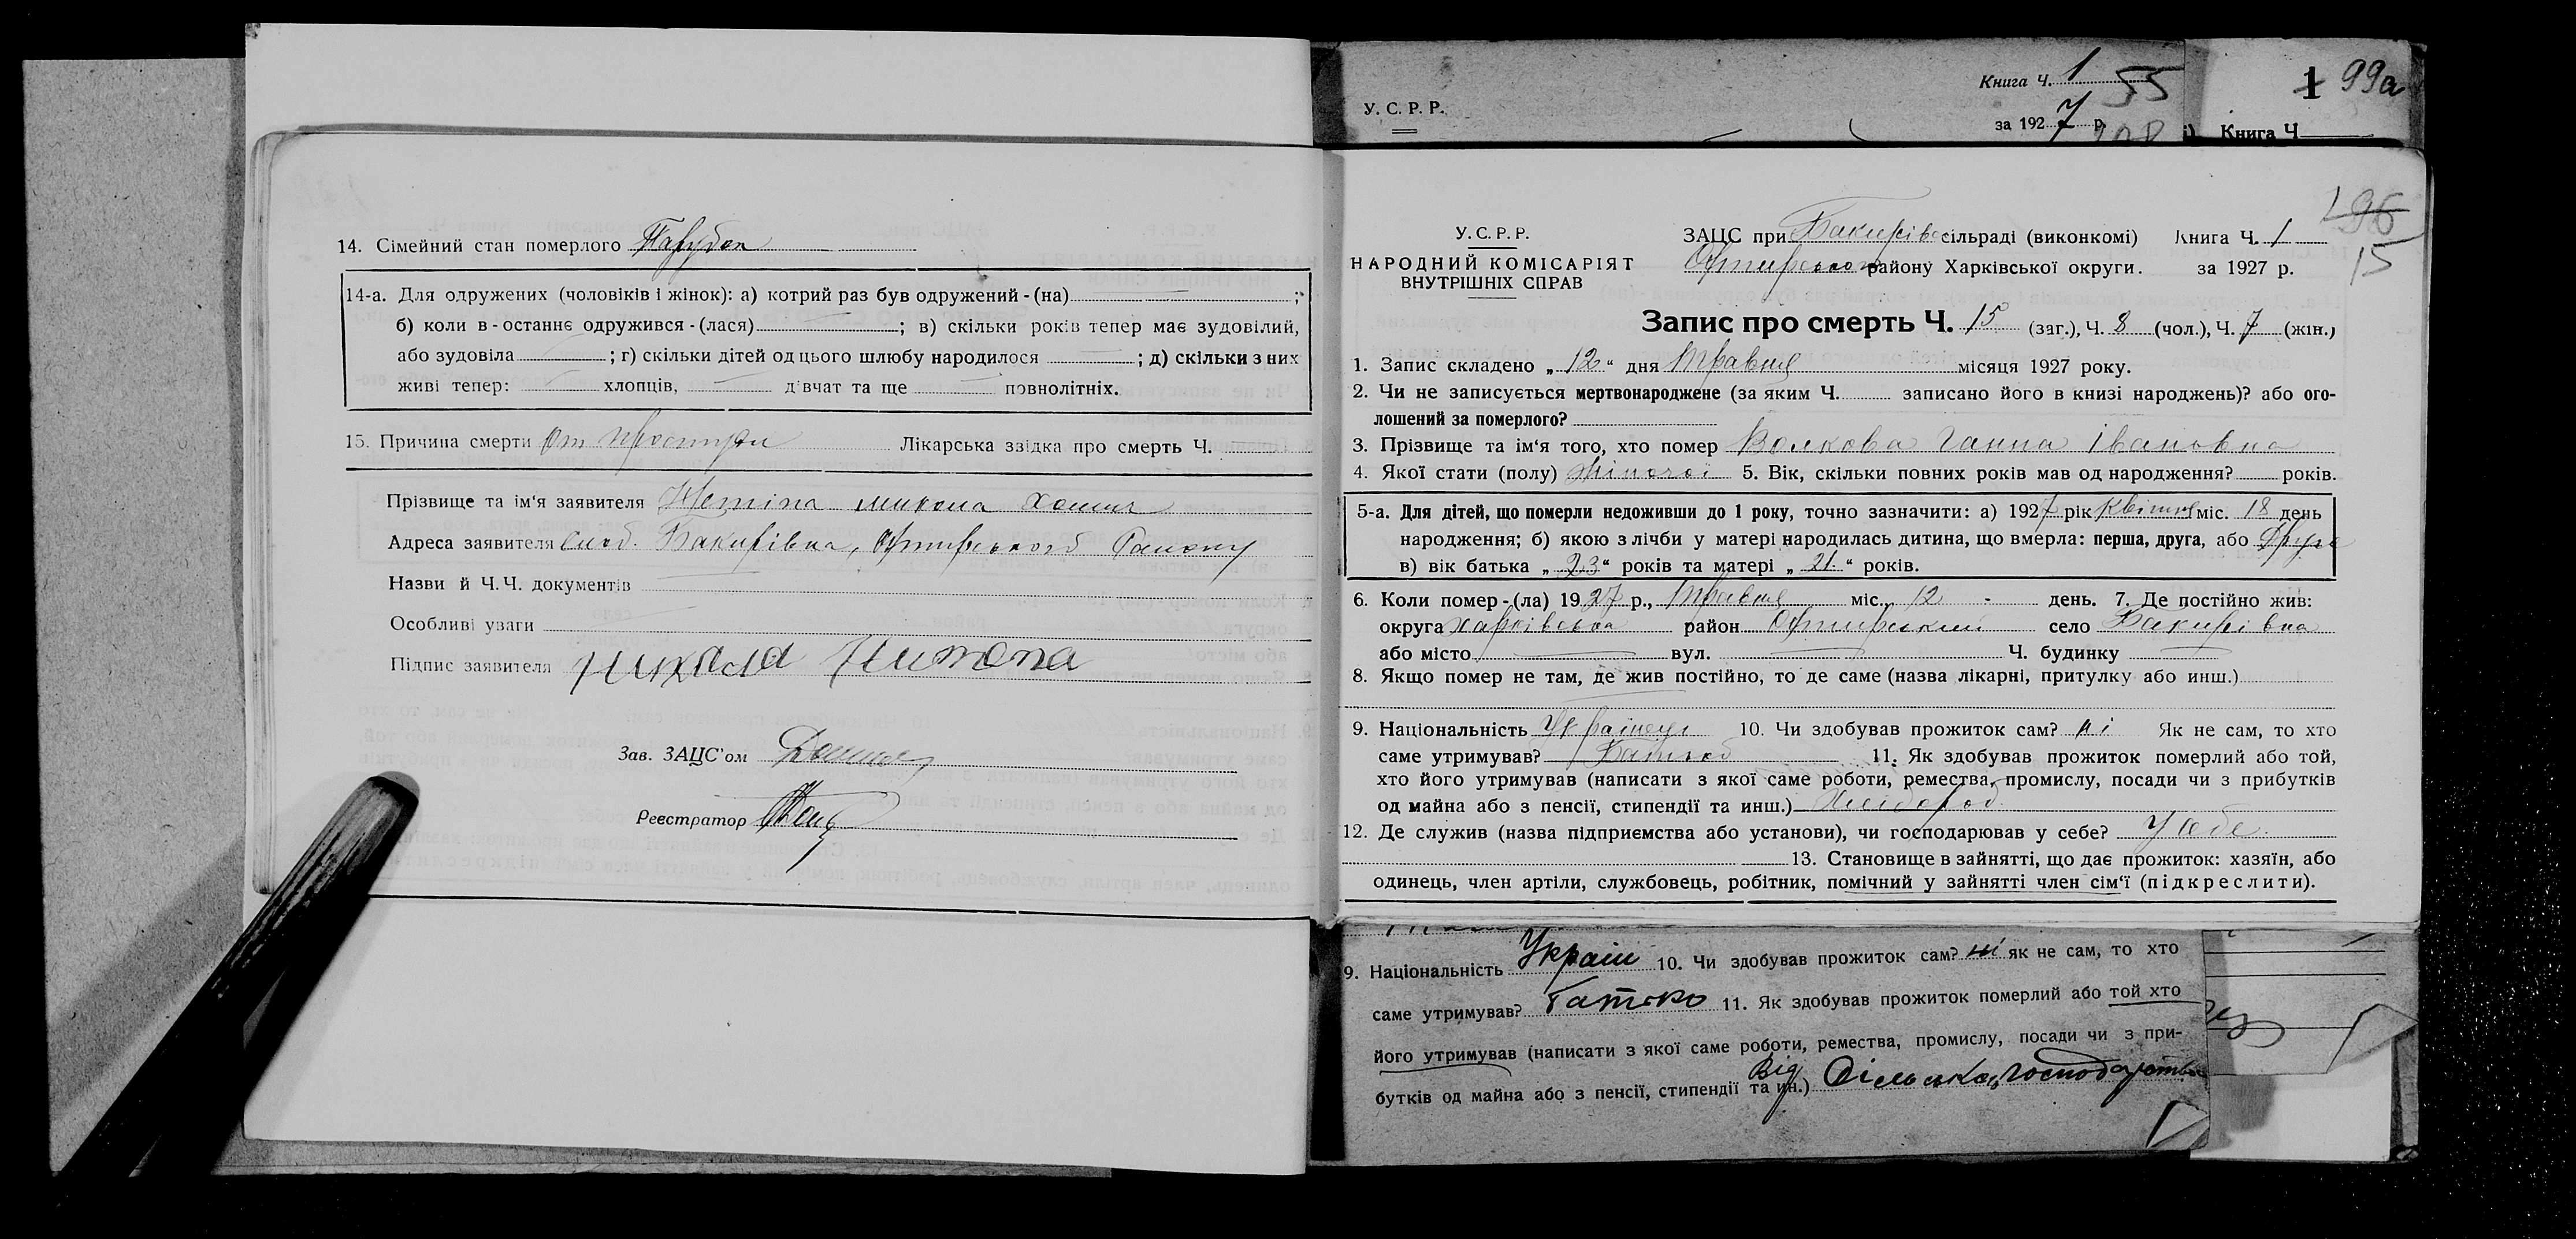 14. Сімейний стан померлого Парубок
14-а. Для одружених (чоловіків і жінок): а) котрий раз був одружений - (на) ;
б) коли в - останнє одружився - (лася) ; в) скільки років тепер має зудовілий,
або зудовіла ; г) скільки дітей од цього шлюбу народилося ; д) скільки з них
живі тепер: хлопців, дівчат та ще повнолітніх.
15. Причина смерти От простуди Лікарська звідка про смерть Ч.
Прізвище та ім'я заявителя микола
Адреса заявителя Слоб. Бакирівка, Охтирського Району
Назви й Ч.Ч. документів
Особливі уваги
Підпис заявителя
Зав. ЗАЦС'ом
Реєстратор
У. С. Р. Р.
Книга Ч. 1 55
за 1927 р.
1 99а
Книга Ч
195
15
У. С. Р. Р.
НАРОДНИЙ КОМІСАРІЯТ
ВНУТРІШНІХ СПРАВ
ЗАЦС при Бакирівс сільраді (виконкомі) Книга Ч. 1
Охтирського району Харківської округи. за 1927 р.
Запис про смерть Ч. 15 (заг.), Ч. 8 (чол.), Ч. 7 (жін.)
1. Запис складено „ 12 “ дня Травня місяця 1927 року.
2. Чи не записується мертвонароджене (за яким Ч. записано його в книзі народжень)? або ого-
лошений за померлого?
3. Прізвище та ім'я того, хто помер Волкова Ганна Івановна
4. Якої стати (полу) жіночої 5. Вік, скільки повних років мав од народження? років.
5-а. Для дітей, що померли недоживши до 1 року, точно зазначити: а) 1927 рік Квітня міс. 18 день
народження; б) якою з лічби у матері народилась дитина, що вмерла: перша, друга, або Друга
в) вік батька „ 23 “ років та матері „ 21 “ років.
6. Коли помер - (ла) 1927 р., Травня міс. 12 - день. 7. Де постійно жив:
округа Харківська район Охтирський село Бакирівка
або місто вул. Ч. будинку
8. Якщо помер не там, де жив постійно, то де саме (назва лікарні, притулку або инш.)
9. Національність 10. Чи здобував прожиток сам? ні Як не сам, то хто
саме утримував? 11. Як здобував прожиток померлий або той,
хто його утримував (написати з якої саме роботи, ремества, промислу, посади чи з прибутків
од майна або з пенсії, стипендії та инш.) Хлібороб
12. Де служив (назва підприємства або установи), чи господарював у себе? У себе
13. Становище в зайнятті, що дає прожиток: хазяїн, або
одинець, член артіли, службовець, робітник, помічний у зайнятті член сім'ї (підкреслити).
9. Національність Україн 10. Чи здобував прожиток сам? ні як не сам, то хто
саме утримував? Батько 11. Як здобував прожиток померлий або той хто
його утримував (написати з якої саме роботи, ремества, промислу, посади чи з при-
бутків од майна або з пенсії, стипендії та ин.) Від Сільська господарства